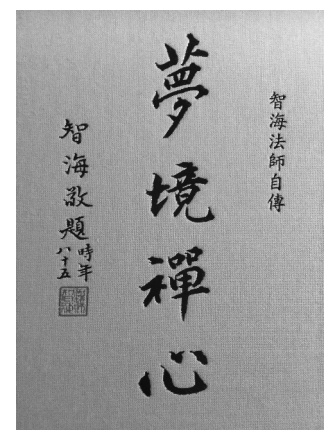 智海法師自傳
夢境禪心
智海敬題
時年
八十五